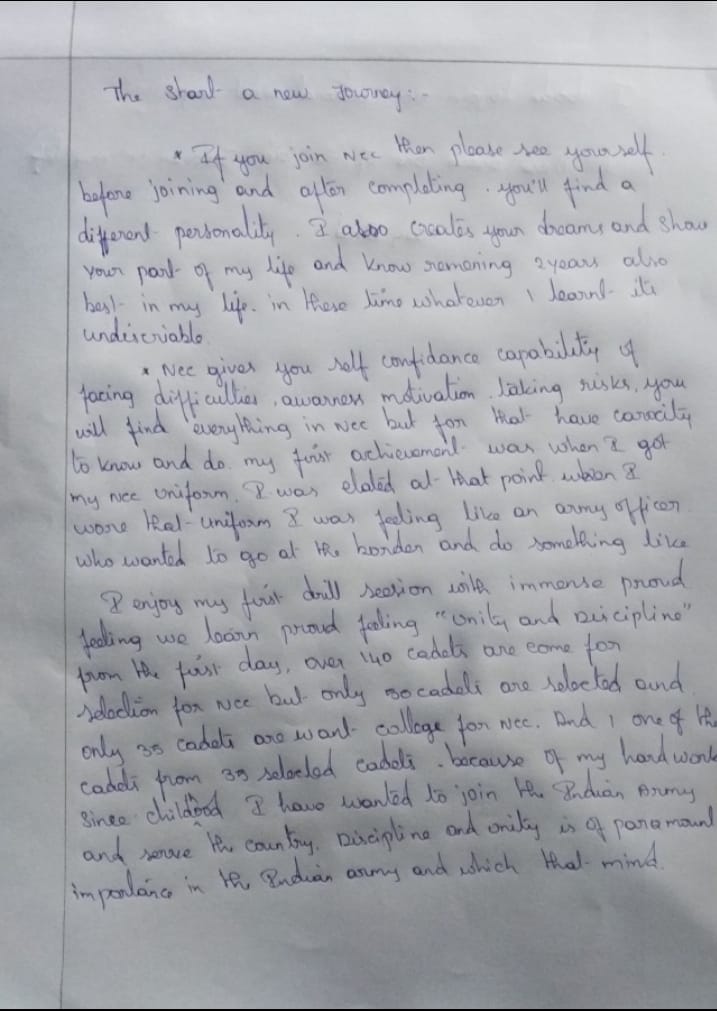 The start a new Journey:-
* If you join NCC then please see yourself.
before joining and after completing. you'll find a
different personality. I also creates your dreams and show
your part of my life and know remaning 2 years also
best in my life. in these time whatever i learnt its
undiscriable.
* NCC gives you self confidance capability of
facing difficulties, awarness motivation, taking risks, you
will find everything in NCC but for that have
to know and do. my first achievement was when I got
my NCC Uniform. I was elated at that point when I
wore that uniform I was feeling like an army officer
who wanted to go at the border and do something like
I enjoy my first drill session with immense proud
feeling we learn proud feeling "Unity and Discipline"
from the first day, over 140 cadets are come for
selection for NCC but only cadets are selected and
only 35 cadets are want college for NCC. And i one of the
cadets from 35 selected cadets. because of my hard work
since childood I have wanted to join the Indian Army
and serve the country. Discipline and unity is of paramount
importance in the Indian army and which that mind.